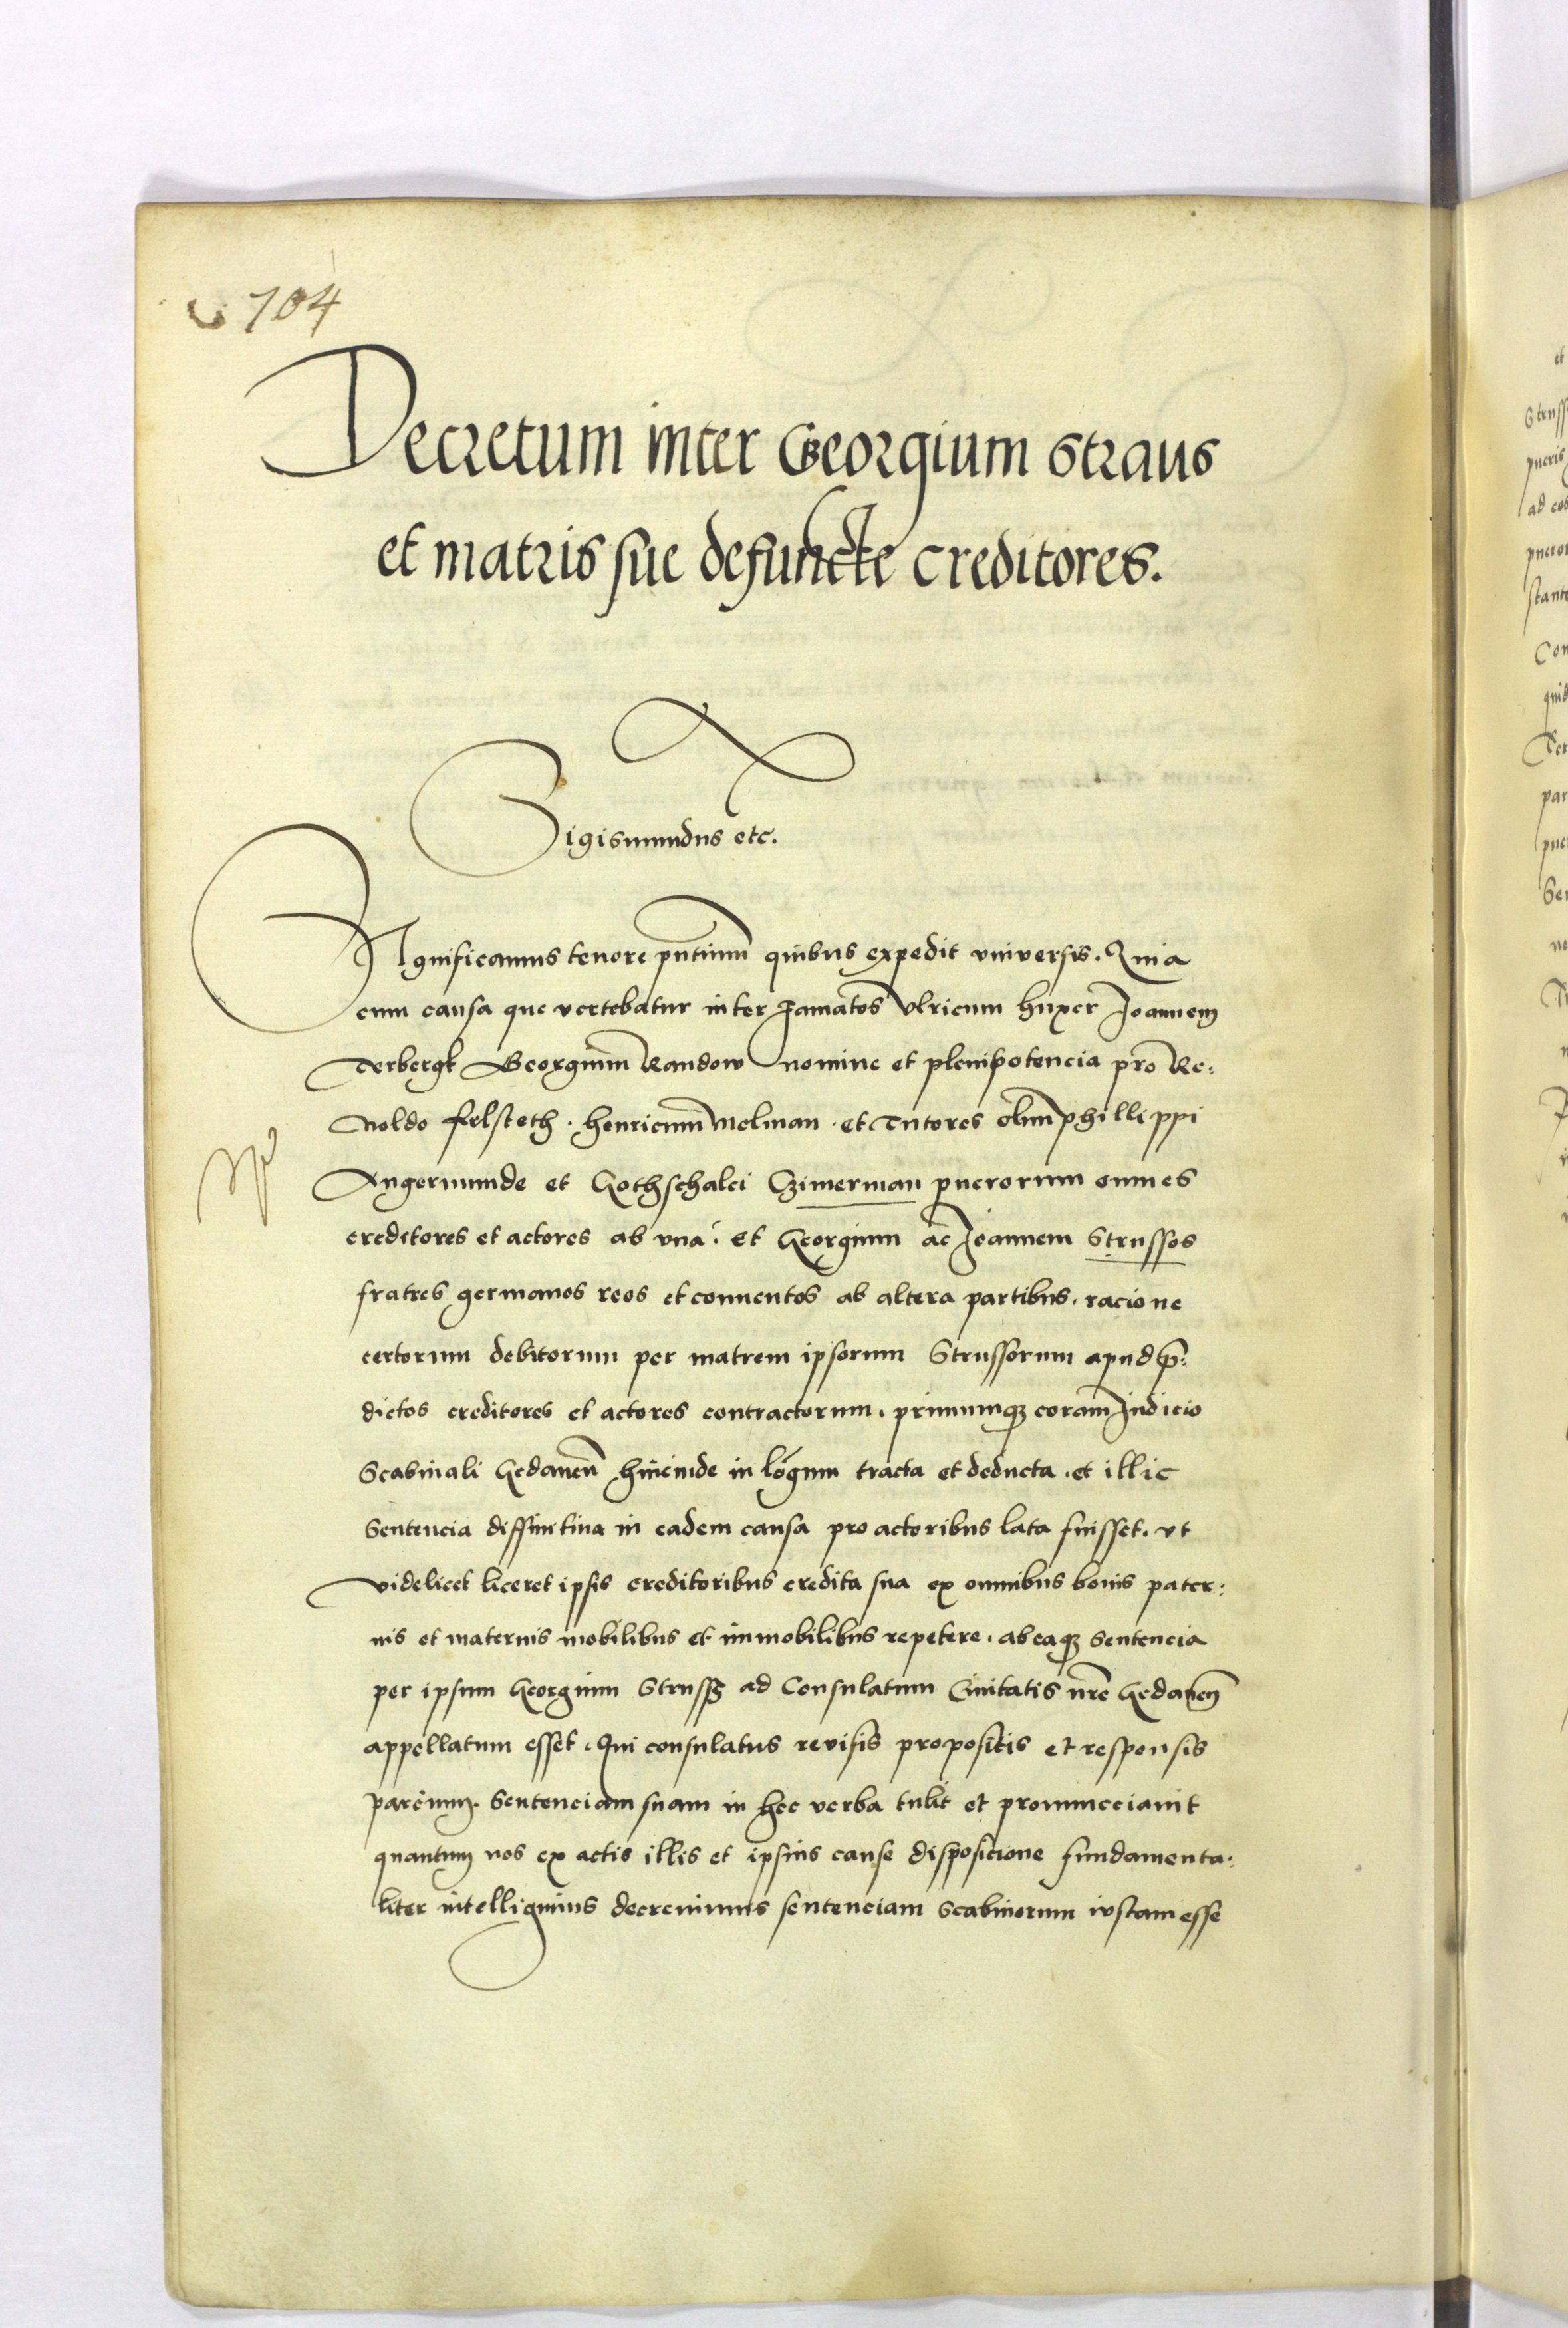 704
Decretum inter Georgium Straus
et matris sue defuncte creditores.
Sigismundus etc.
Significamus tenore pntium quibus expedit vniversis. Quia
cum causa que vertebatur inter famatos Vlricum huxer Joannem
Terbergk Georgium Randow nomine et plenipotencia pro Re:
noldo felsteth. henricum Melman. et Tutores olim phillippi
Angermunde et Gothschalci Czimerman puerorum omnes
creditores et actores ab vna. et Georgium ac Joannem Strussos
fratres germanos reos et conuentos ab altera partibus. racione
certorum debitorum per matrem ipsorum Strussorum apud p̄:
dictos creditores et actores contractorum. primumqȝ coram Judicio
Scabinali Gedaneñ hincinde in longum tracta et deducta. et illic
Sentencia diffinitiua in eadem causa pro actoribus lata fuisset. vt
videlicet liceret ipsis creditoribus credita sua ex omnibus bonis pater:
nis et maternis mobilibus et immobilibus repetere. ab eaqȝ Sentencia
per ipsum Georgium Struss ad Consulatum Ciuitatis nr̃e Gedaneñ
appellatum esset. Qui consulatus revisis propositis et responsis
parcium. Sentenciam suam in hec verba tulit et pronuncciauit
quantum nos ex actis illis et ipsius cause disposicione fundamenta:
liter intelligimus decreuimus sentenciam Scabinorum iustam esse